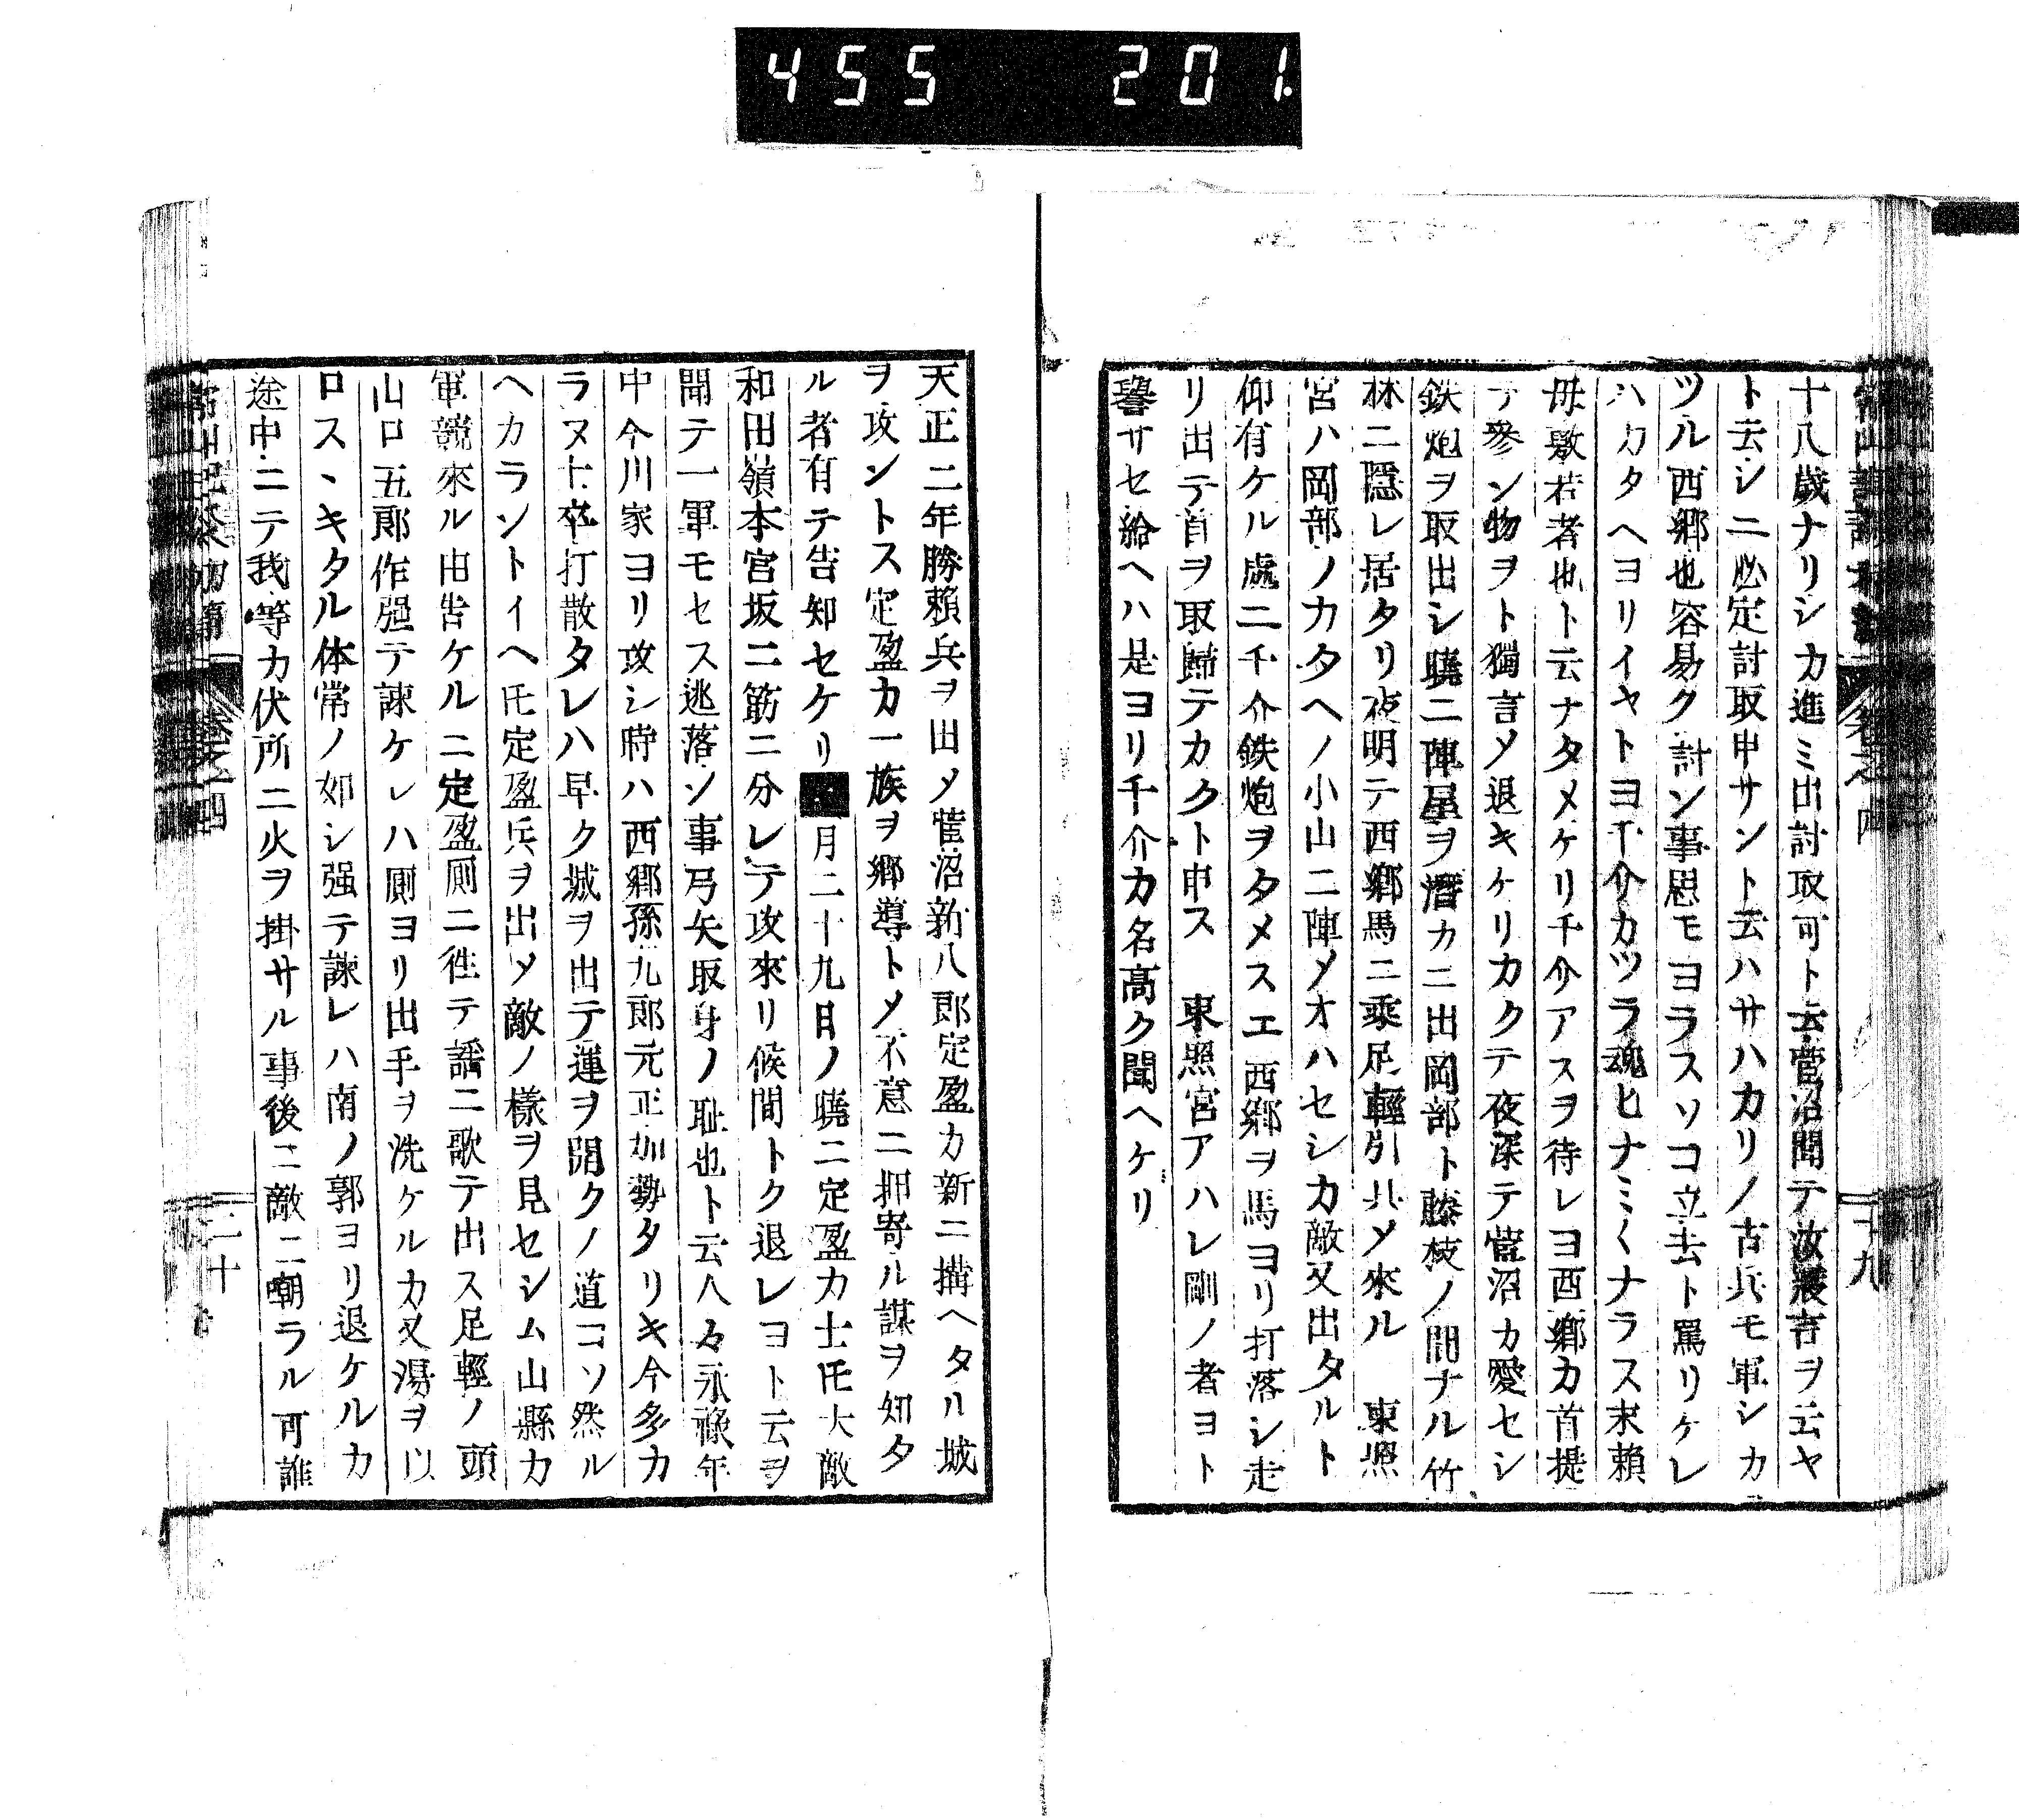 455 201.
十八歳ナリシカ進ミ出討取可ト云菅沼聞テ汝襁言ヲ云ヤ
ト云シニ必定討取申サント云ハサハカリノ古兵モ軍シカ
ツル西郷也容易ク討ン事思モヨラスソコ立去ト罵リケレ
ハカタヘヨリイヤトヨ千介カツラ魂ヒナミ〱ナラス末頼
母敷若者也ト云ナタメケリ千介アスヲ待レヨ西郷カ首提
テ參ン物ヲト獨言メ退キケリカクテ夜深テ菅沼カ愛セシ
鉄炮ヲ取出シ曉ニ陣屋ヲ潛カニ出岡部ト藤枝ノ間ナル竹
林ニ隱レ居タリ夜明テ西郷馬ニ乘足輕引具メ來ル 東照
宮ハ岡部ノカタヘノ小山ニ陣メオハセシカ敵又出タルト
仰有ケル處ニ千介鉄炮ヲタメスエ西郷ヲ馬ヨリ打落シ走
リ出テ首ヲ取歸テカクト申ス 東照宮アハレ剛ノ者ヨト
譽サセ給ヘハ是ヨリ千介カ名高ク聞ヘケリ
天正二年勝頼兵ヲ出メ菅沼新八郎定盈カ新ニ搆ヘタル城
ヲ攻ントス定盈カ一族ヲ郷導トメ不意ニ押寄ル謀ヲ知タ
ル者有テ告知セケリ 月二十九日ノ曉ニ定盈カ士𪜈大敵
和田嶺本宮坂ニ筋ニ分レテ攻來リ候間トク退レヨト云ヲ
聞テ一軍モセス逃落ン事弓矢取身ノ耻也ト云人々永祿年
中今川家ヨリ攻シ時ハ西郷孫九郎元正加勢タリキ今多カ
ラヌ士卒打散タレハ早ク城ヲ出テ運ヲ開クノ道コソ然ル
ヘカラントイヘ𪜈定盈兵ヲ出メ敵ノ樣ヲ見セシム山縣カ
軍競來ル由告ケルニ定盈厠ニ徃テ謠ニ歌テ出ス足輕ノ頭
山口五郎作强テ諫ケレハ厠ヨリ出手ヲ洗ケルカ又湯ヲ以
ロスヽキタル体常ノ如シ强テ諫レハ南ノ郭ヨリ退ケルカ
途中ニテ我等カ伏所ニ火ヲ掛サル事後ニ敵ニ嘲ラル可誰
二十